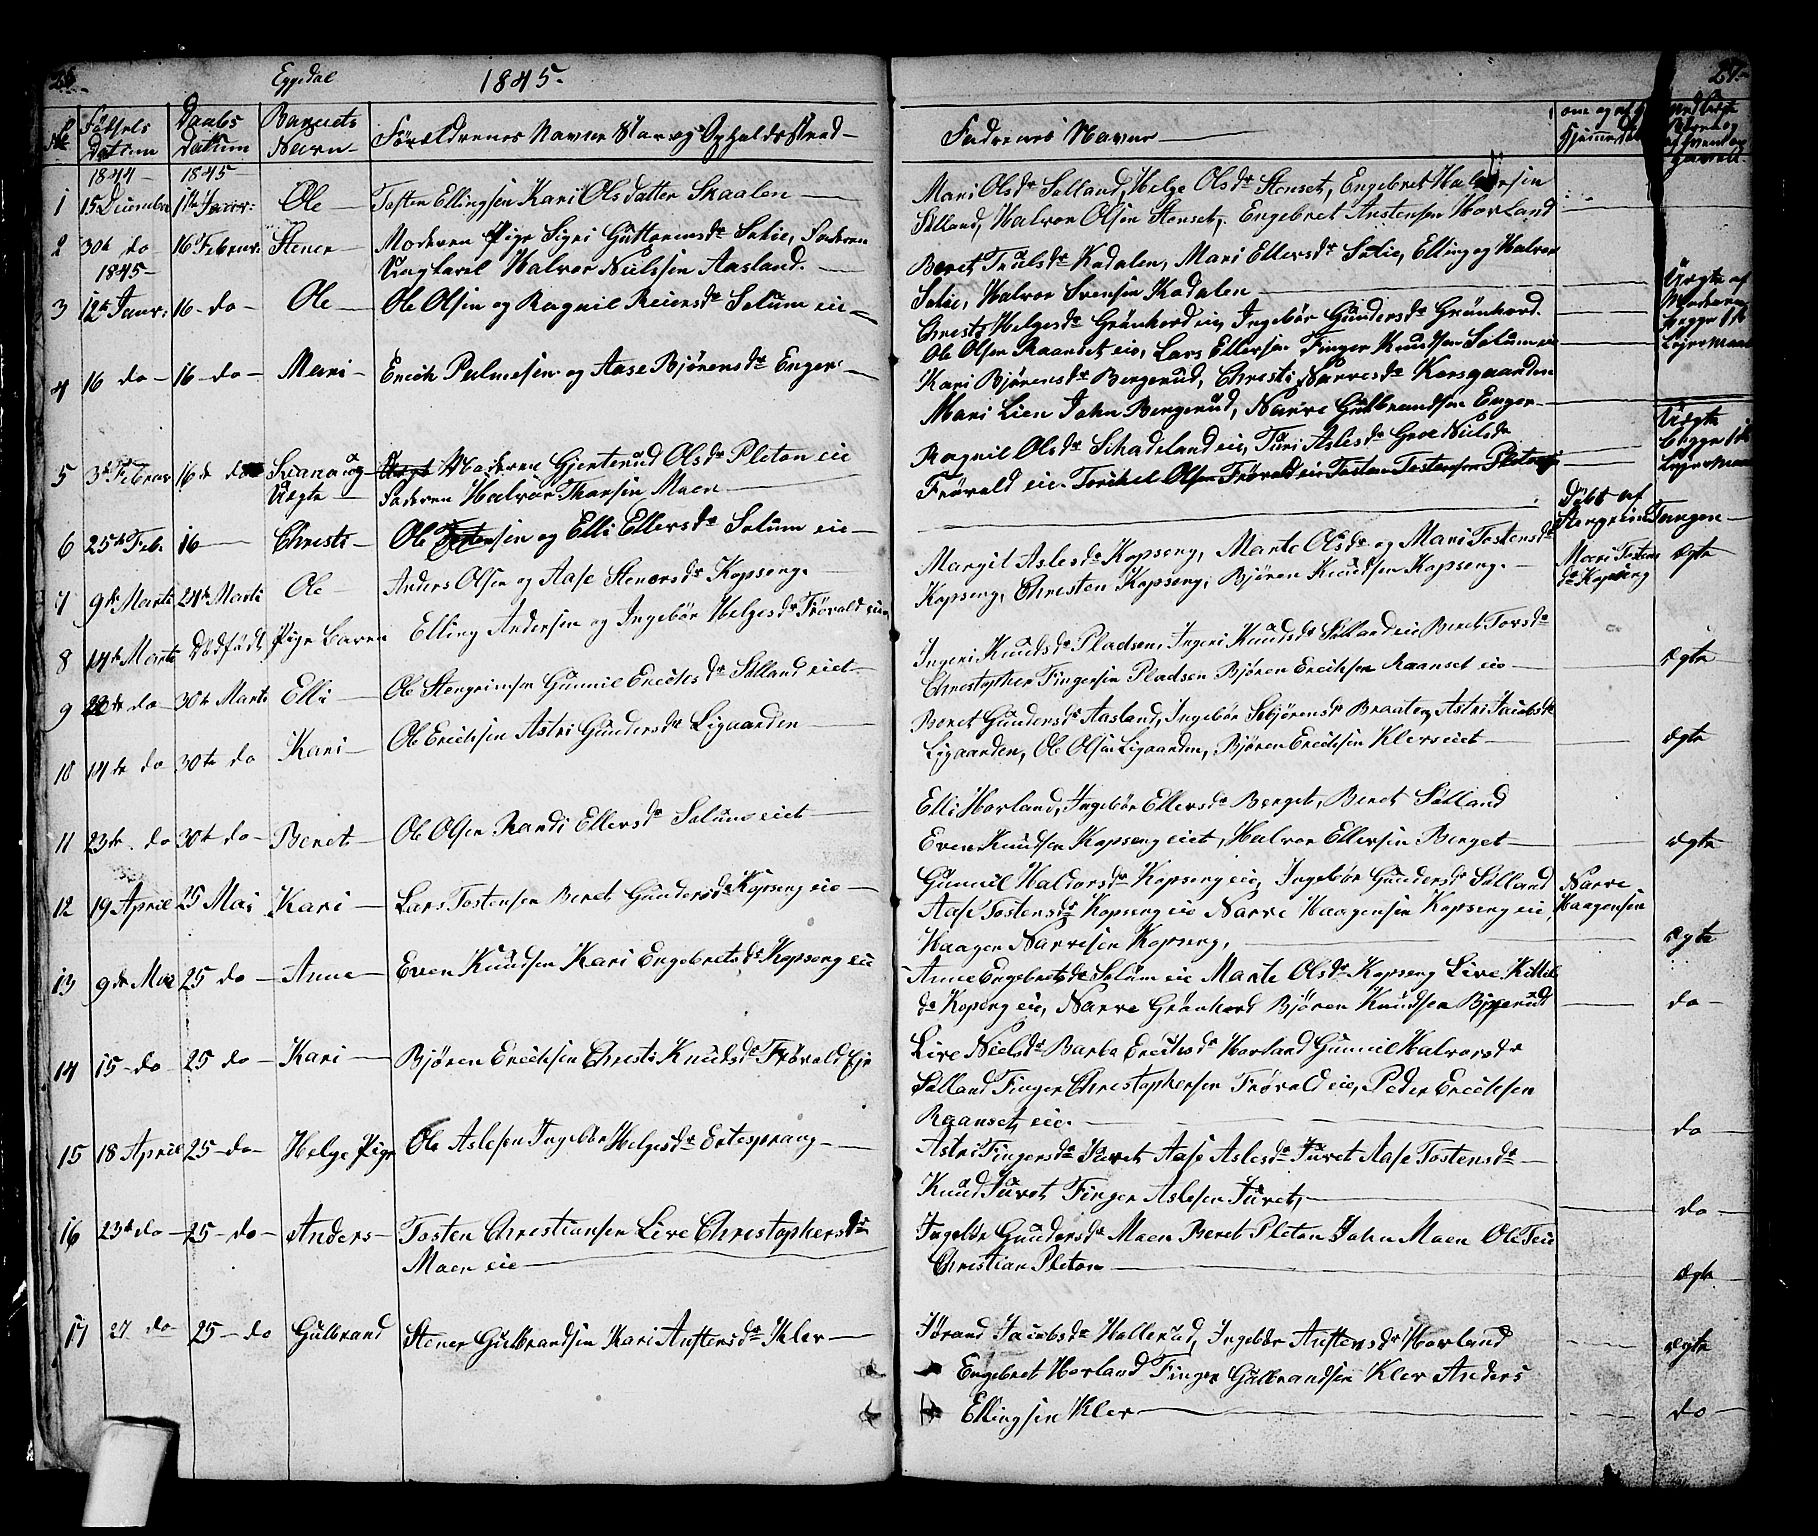 Eggedal 1845. 27.
No Fødsels Datum Daabs Datum Barnets Navn Forældrenes Navne Stan og Opholdssted Faderens Navne
1844 1845
1 15 December 1ste Janr: Ole Tosten Ellingsen Kari Olsdatter Skaalen
Mari Olsdr Sølland, Helge Olsdr Stenset, Engebret Halvorsen
Sølland, Halvor Olsen Stenset, Engebret Anstensen Horland
2 30te do 16 Februr: Stener Moderen Pige Sigri Guttormsdr Solie, Faderen
Ungkarl Halvor Nielssen Aasland.
Beret Trulsdr Kadalen, Mari Ellersdr Solie, Elling og Halvor
Solie, Halvor Svensen Kadalen
Uægte af
1845
3 12te Janr: 16 do Ole Ole Olsen og Ragnil Reiersdr Solum eie
Christi Helgesdr Grønhord eie, Ingebør Gundersdr Grønhord.
Ole Olsen Raanset eie, Lars Ellersen Finger Knudsen Solum eie
4 16 do 16 do Mari Erich Palmesen og Aase Bjørensdr Enger
Kari Bjørensdr Bergerud, Christi Narvesdr Korsgaarden
Mari Lien John Bergerud, Narve Gulbrandsen Enger
5 3de Februr 16de do Uægte Moderen Gjertrud Olsdr Pleton eie
Faderen Halvor Thorsen Moen
Ragnil Olsdr Skadeland eie, Turi Aslesdr Grov Nielsdr
Frøvold eie Torkel Olsen Frøvold eie Tosten Tostensen Pleton
Uægte
begge 1ste
6 25de Feb. 16 Christi Ole Tostensen og Elli Ellersdr Solum eie
Døbt af
Stengrim Tangen
7 9de Marts 24de Marts Ole Anders Olsen og Aase Stenersdr Kopseng.
Margit Aslesdr Kopseng, Marte Olsdr og Mari Tostensdr
Kopseng, Christen Kopseng, Bjøren Knudsen Kopseng.
Mari Tostens
dr Kopseng
Ægte
8 14de Marts Dødfødt Pige Barn Elling Andersen og Ingebør Helgesdr Frøvold eie
9 22de do 30te Marts Elli Ole Stengrimsen Gunnil Erichsdr Sølland eiet
Ingeri Knudsdr Pladsen, Ingeri Knudsdr Sølland eie Beret Torsdr
Christopher Fingersen Pladsen Bjøren Erichsen Raanset eie
Ægte
10 14de do 30te do Kari Ole Erichsen Astri Gundersdr Ligaarden
Beret Gundersdr Aasland, Ingebør Esbjørensdr Braaten, Astri Jacobsdr
Ligaarden, Ole Olsen Ligaarden, Bjøren Erichsen Klev eiet
Ægte
11 23de do 30te do Beret Ole Olsen Randi Ellersdr Solum eiet
Elli Horland, Ingebør Ellersdr Berget, Beret Sølland
Even Knudsen Kopseng eiet, Halvor Ellersen Berget
Ægte
12 19 April 25 Mai Kari Lars Tostensen Beret Gundersdr Kopseng eie
Gunnil Haldorsdr Kopseng eie, Ingebør Gundersdr Sølland
Aase Tostensdr Kopseng eie Narve Haagensen Kopseng eie
Haagen Narvesen Kopseng,
Narve
Haagensen
Ægte
13 9de Mai 25 do Anne Even Knudsen Kari Engebretsdr Kopseng eie
Anne Engebretsdr Solum eie Marte Olsdr Kopseng Live Kittils
dr Kopseng eie, Narve Grønhord Bjøren Knudsen Bjørerud
do
14 15 do 25 do Kari Bjøren Erichsen Christi Knudsdr Frøvold Eje
Live Nielsdr Barbo Erichsdr Horland Gunnil Halvorsdr
Sølland Finger Christophersen Frøvold eie, Peder Erichsen
Raanset eie.
do
15 18 April 25 do Helge Pige Ole Aslesen Ingebør Helgesdr Ertesprang
Astri Fingersdr Juvet Aase Aslesdr Juvet Aase Tostensdr
Knud Juvet Finger Aslesen Juvet,
do
16 23de do 25 do Anders Tosten Christiansen Live Christophersdr
Moen eie
Ingebør Gundersdr Moen Beret Pleton John Moen Ole Teie
Christian Pleton
Ægte
17 27 do 25 do Gulbrand Stener Gulbrandsen Kari Anstensdr Klev
Jørand Jacobsdr Hollerud, Ingebør Anstensdr Horland
Engebret Horland Finger Gulbrandsen Klev Anders
Ellingsen Klev
Ægte
do